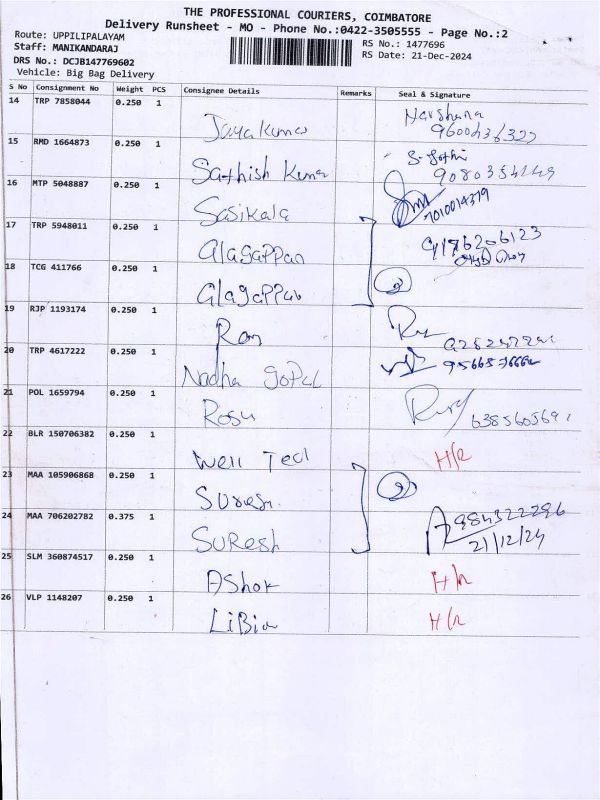 THE PROFESSIONAL COURIERS, COIMBATORE
Delivery Runsheet - MO - Phone No.:0422-3505555 - Page No.:2
Route: UPPILIPALAYAM
Staff: MANIKANDARAJ
RS No.: 1477696
DRS No.: DCJB147769602
RS Date: 21-Dec-2024
Vehicle: Big Bag Delivery
S No Consignment No Weight PCS Consignee Details Remarks Seal & Signature
14 TRP 7858044 0.250 1 Jayakumar Harshana
15 RMD 1664873 0.250 1 Sathish Kumar
16 MTP 5048887 0.250 1 Sasikala 7010014379
17 TRP 5948011 0.250 1 Alagappan 9176206123
18 TCG 411766 0.250 1 Alagappan 2
19 RJP 1193174 0.250 1 Ram
20 TRP 4617222 0.250 1 Nadha Gopal
21 POL 1659794 0.250 1 Rosu
22 BLR 150706382 0.250 1 Well Ted H/R
23 MAA 105906868 0.250 1 Suresh 2
24 MAA 706202782 0.375 1 Suresh 9843222296
21/12/24
25 SLM 360874517 0.250 1 Ashok H/R
26 VLP 1148207 0.250 1 Libia H/R